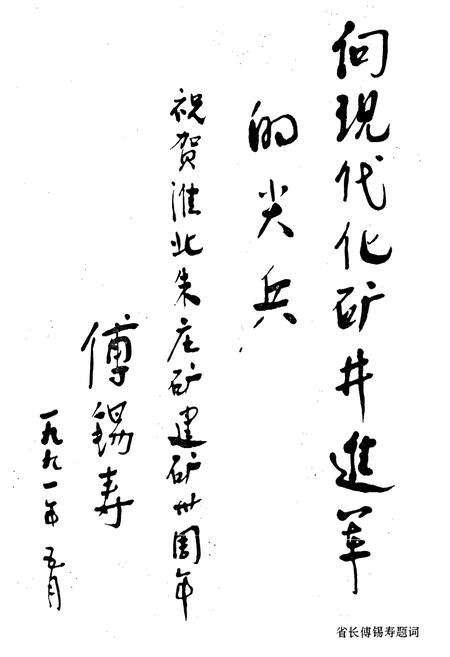 向現代化矿井進军
的尖兵
祝贺淮北朱庄矿建矿卅周年
傅锡寿
一九九一年五月
省长傅锡寿题词